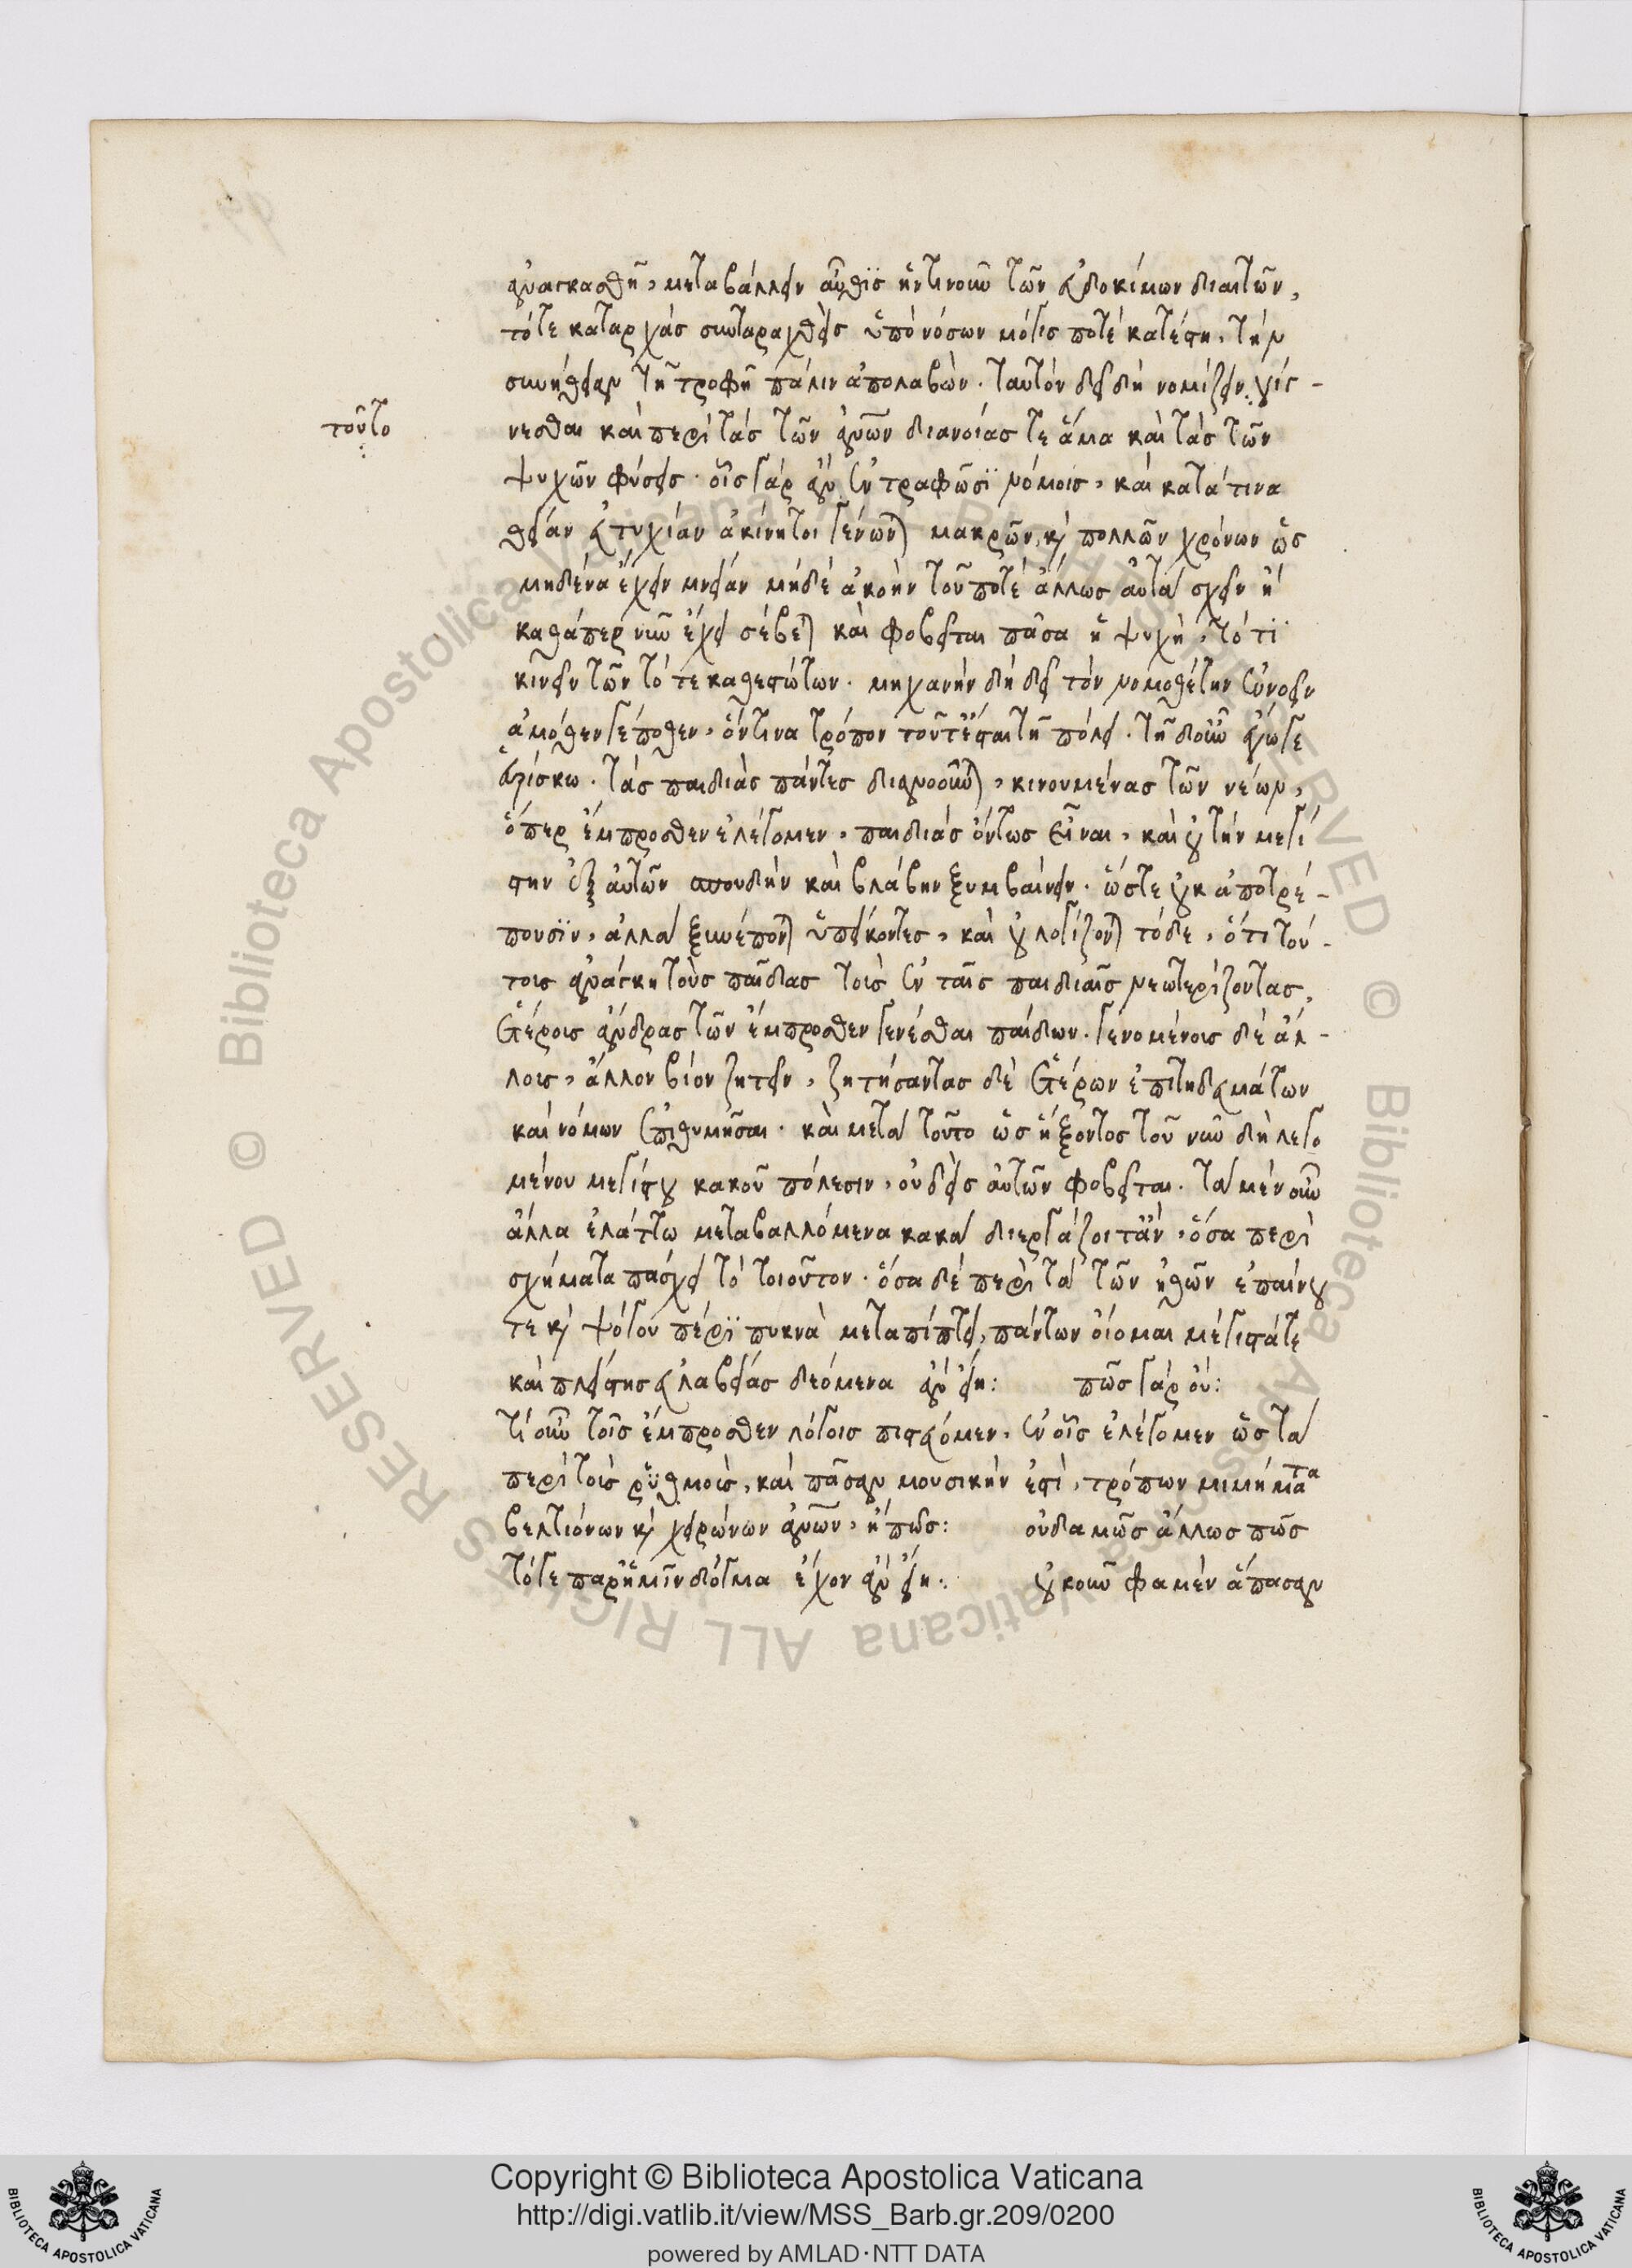 ἀναγκασθῆ, μεταβάλλειν αὖθϊς ἡντινοῦν τῶν εὐδοκίμων διαιτῶν,
τότε καταρχάς συνταραχθεὶς ὑπὸ νόσων μόγις ποτὲ κατέστη, τὴν
συνήθειαν τῆ τροφῆ πάλιν ἀπολαβὼν. ταυτὸν δεῖ δὴ νομίζειν γίγ-
τοῦτο
νεσθαι καὶ περὶ τὰς τῶν ἀνων διανοίας τε ἅμα καὶ τὰς τῶν
ψυχῶν φύσεις. οἷς γὰρ ἂν ἐντραφῶσϊ νόμοις, καὶ κατά τινα
θείαν εὐτυχίαν ἀκίνητοι γένωνται μακρῶν, καὶ πολλῶν χρόνων ὡς
μηδένα ἔχειν μνείαν μηδὲ ἀκοὴν τοῦ ποτὲ ἄλλως αὐτὰ σχεῖν ἢ
καθάπερ νῦν ἔχει σέβεται καὶ φοβεῖται πᾶσα ἡ ψυχὴ, τό τϊ
κινεῖν τῶν τότε καθεστώτων. μηχανὴν δὴ δεῖ τὸν νομοθέτην ἐννοεῖν
ἁμόθεν γέ ποθεν, ὅντινα τρόπον τοῦτ' ἔσται τῆ πόλει. τῆδ' οὖν ἔγωγε
εὑρίσκω. τὰς παιδιὰς πάντες διανοοῦνται, κινουμένας τῶν νέων,
ὅπερ ἔμπροσθεν ἐλέγομεν, παιδιὰς ὄντως εἶναι, καὶ οὐ τὴν μεγί
στην ἐξ αὐτῶν σπουδὴν καὶ βλάβην ξυμβαίνειν. ὥστε οὐκ ἀποτρέ-
πουσϊν, ἀλλὰ ξυνέπονται ὑπείκοντες, καὶ οὐ λογίζονται τόδε, ὅτι τού-
τοις ἀνάγκη τοὺς παῖδας τοὺς ἐν ταῖς παιδιαῖς νεωτερίζοντας,
ἑτέροις ἄνδρας τῶν ἔμπροσθεν γενέσθαι παίδων. γενομένοις δὲ ἄλ-
λοις, ἄλλον βίον ζητεῖν, ζητήσαντας δὲ ἑτέρων ἐπιτηδευμάτων
καὶ νόμων ἐπιθυμῆσαι. καὶ μετὰ τοῦτο ὡς ἥξοντος τοῦ νῦν δὴ λεγο
μένου μεγίστου κακοῦ πόλεσιν, οὐδεὶς αὐτῶν φοβεῖται. τὰ μὲν οὖν
ἄλλα ἐλάττω μεταβαλλόμενα κακὰ διεργάζοιτ' ἂν, ὅσα περὶ
σχήματα πάσχει τὸ τοιοῦτον. ὅσα δὲ περὶ τὰ τῶν ἠθῶν ἐπαίνου
τε καὶ ψόγου πέρϊ πυκνὰ μεταπίπτει, πάντων οἴομαι μέγιστά τε
καὶ πλείστης εὐλαβείας δεόμενα ἂν εἴη: πῶς γὰρ οὔ:
τί οὖν τοῖς ἔμπροσθεν λόγοις πιστεύομεν, ἐν οἷς ἐλέγομεν ὡς τὰ
περὶ τοὺς ῥυθμοὺς, καὶ πᾶσαν μουσικὴν ἐστὶ, τρόπων μιμήματα
βελτιόνων καὶ χειρόνων ἀνων, ἢ πῶς: οὐδαμῶς ἄλλως πῶς
τόγε παρ' ἡμῖν δόγμα ἔχον ἂν εἴη: οὐκοῦν φαμὲν ἅπασαν
Copyright © Biblioteca Apostolica Vaticana
http://digi.vatlib.it/view/MSS_Barb.gr.209/0200
powered by AMLAD·NTT DATA